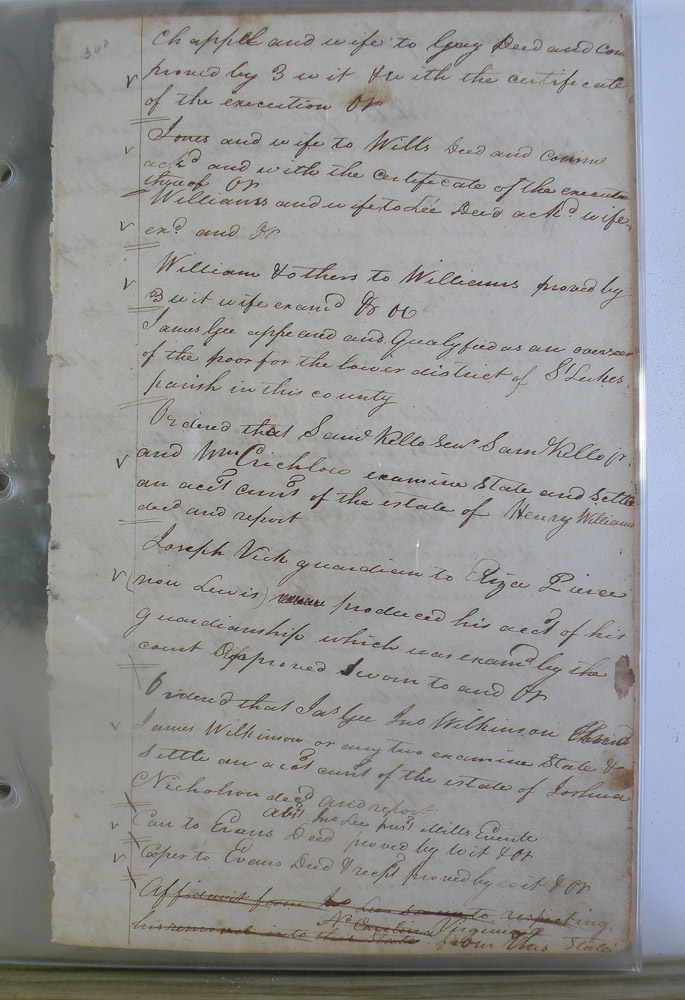 340
Chappell and wife to Gray Deed and Com
proved by 3 wit & with the certificate
of the execution Or
Jones and wife to Wills Deed and Comm
ackd and with the certificate of the executn
thereof Or
Williams and wife to Lee Deed ackd wife
exd and Or
William & others to Williams proved by
3 wit wife examd & Or
James Gee appeard and Qualyfied as an overseer
of the poor for the lower district of St Lukes
parish in this county
Ordered that Saml Kello Senr Saml Kello jr.
and Wm Crichlow examine State and Settle
an acct currt of the estate of Henry Williams
decd and report
Joseph Vick guardian to Eliza Pierce
(now Lewis) produced his acct of his
guardianship which was examd by the
court Approved Sworn to and Or
Ordered that Jas Gee Jno Wilkinson
James Wilkinson or any two examine State &
Settle an acct currt of the estate of Joshua
Nicholson decd and report
Abst Jno Lee Mills
Carr to Evans Deed proved by wit & Or
Coper to Evans Deed & rect proved by wit & Or
Affidavit from to respecting
N Carolina
his removal into this State from this State